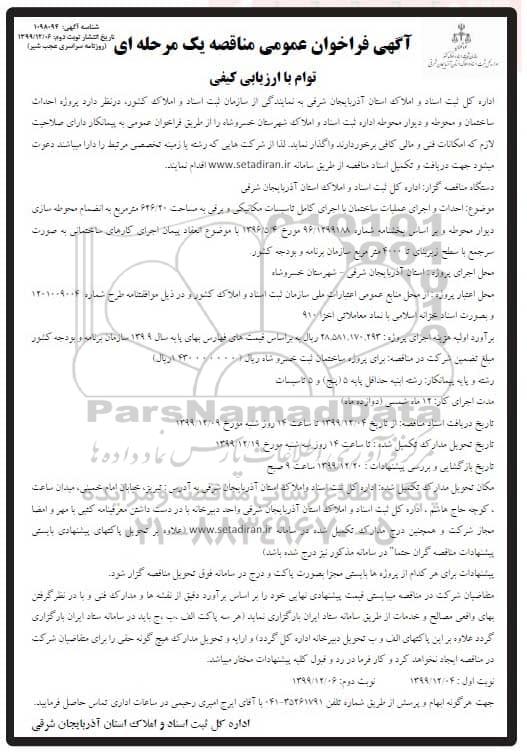 شناسه آگهی: ۱۰۹۸۰۹۴
تاریخ انتشار نوبت دوم: ۱۳۹۹/۱۲/۰۶
(روزنامه سراسری عجب شیر)
آگهی فراخوان عمومی مناقصه یک مرحله ای
توام با ارزیابی کیفی
اداره کل ثبت اسناد و املاک استان آذربایجان شرقی به نمایندگی از سازمان ثبت اسناد و املاک کشور، درنظر دارد پروژه احداث
ساختمان و محوطه و دیوار محوطه اداره ثبت اسناد و املاک شهرستان خسروشاه را از طریق فراخوان عمومی به پیمانکار دارای صلاحیت
لازم که امکانات فنی و مالی کافی برخوردارند واگذار نماید. لذا از شرکت هایی که رشته یا زمینه تخصصی مرتبط را دارا میباشند دعوت
میشود جهت دریافت و تکمیل اسناد مناقصه از طریق سامانه www.setadiran.ir اقدام نمایند.
دستگاه مناقصه گزار: اداره کل ثبت اسناد و املاک استان آذربایجان شرقی
موضوع: احداث و اجرای عملیات ساختمان با اجرای کامل تاسیسات مکانیکی و برقی به مساحت ۶۲۶/۲۰ مترمربع به انضمام محوطه سازی
دیوار محوطه و بر اساس بخشنامه شماره ۹۶/۱۲۹۹۱۸۸ مورخ ۱۳۹۶/۵/۴ با موضوع انعقاد پیمان اجرای کارهای ساختمانی به صورت
سرجمع با سطح زیربنای تا ۴۰۰۰ متر مربع سازمان برنامه و بودجه کشور
محل اجرای پروژه: استان آذربایجان شرقی - شهرستان خسروشاه
محل اعتبار پروژه: از محل منابع عمومی اعتبارات ملی سازمان ثبت اسناد و املاک کشور و در ذیل موافقتنامه طرح شماره ۱۲۰۱۰۰۹۰۰۴
و بصورت اسناد خزانه اسلامی با نماد معاملاتی اخزا ۹۱۰
برآورد اولیه هزینه اجرای پروژه: ۲۸.۵۸۱.۱۷۰.۲۹۳ ریال به براساس قیمت های فهارس بهای پایه سال ۱۳۹۹ سازمان برنامه و بودجه کشور
مبلغ تضمین شرکت در مناقصه: برای پروژه ساختمان ثبت خسرو شاه ریال (۱۴۳۰۰۰۰۰۰۰ریال)
رشته و پایه پیمانکار: رشته ابنیه حداقل پایه ۵ (پنج) و ۵ تاسیسات
مدت اجرای کار: ۱۲ ماه شمسی (دوازده ماه)
تاریخ دریافت اسناد مناقصه: از تاریخ ۱۳۹۹/۱۲/۰۴ تا ساعت ۱۴ روز شنبه مورخ ۱۳۹۹/۱۲/۰۹
تاریخ تحویل مدارک تکمیل شده: تا ساعت ۱۴ روز سه شنبه مورخ ۱۳۹۹/۱۲/۱۹
تاریخ بازگشایی و بررسی پیشنهادات: ۱۳۹۹/۱۲/۲۰ ساعت ۹ صبح
مکان تحویل مدارک تکمیل شده: اداره کل ثبت اسناد واملاک استان آذربایجان شرقی به آدرس: تبریز، خیابان امام خمینی، میدان ساعت
، کوچه حاج هاشم، اداره کل ثبت اسناد و املاک استان آذربایجان شرقی واحد دبیرخانه با در دست داشتن معرفینامه کتبی با مهر و امضا
مجاز شرکت و همچنین درج مدارک تکمیل شده در سامانه www.setadiran.ir (علاوه بر تحویل پاکتهای پیشنهادی بایستی
پیشنهادات مناقصه گران حتما" در سامانه مذکور نیز درج شده باشد)
پیشنهادات برای هر کدام از پروژه ها بایستی مجزا بصورت پاکت و درج در سامانه فوق تحویل مناقصه گزار شود.
متقاضیان شرکت در مناقصه میبایستی قیمت پیشنهادی نهایی خود را بر اساس برآورد دقیق از نقشه ها و مدارک فنی و با در نظرگرفتن
بهای واقعی مصالح و خدمات از طریق سامانه ستاد ایران بارگزاری نماید (هر سه پاکت الف ،ب ،ج باید در سامانه ستاد ایران بارگزاری
گردد علاوه بر این پاکتهای الف و ب تحویل دبیرخانه اداره کل گردد) و ارایه و تحویل مدارک هیچ گونه حقی را برای متقاضیان شرکت
در مناقصه ایجاد نخواهد کرد و کار فرما در رد و قبول کلیه پیشنهادات مختار میباشد.
نوبت اول: ۱۳۹۹/۱۲/۰۴ نوبت دوم: ۱۳۹۹/۱۲/۰۶
جهت هرگونه ابهام و پرسش از طریق شماره تلفن ۰۴۱-۳۵۲۶۱۷۹۱ با آقای ایرج امیری رحیمی در ساعات اداری تماس حاصل فرمایید.
اداره کل ثبت اسناد و املاک استان آذربایجان شرقی
ParsNamadData